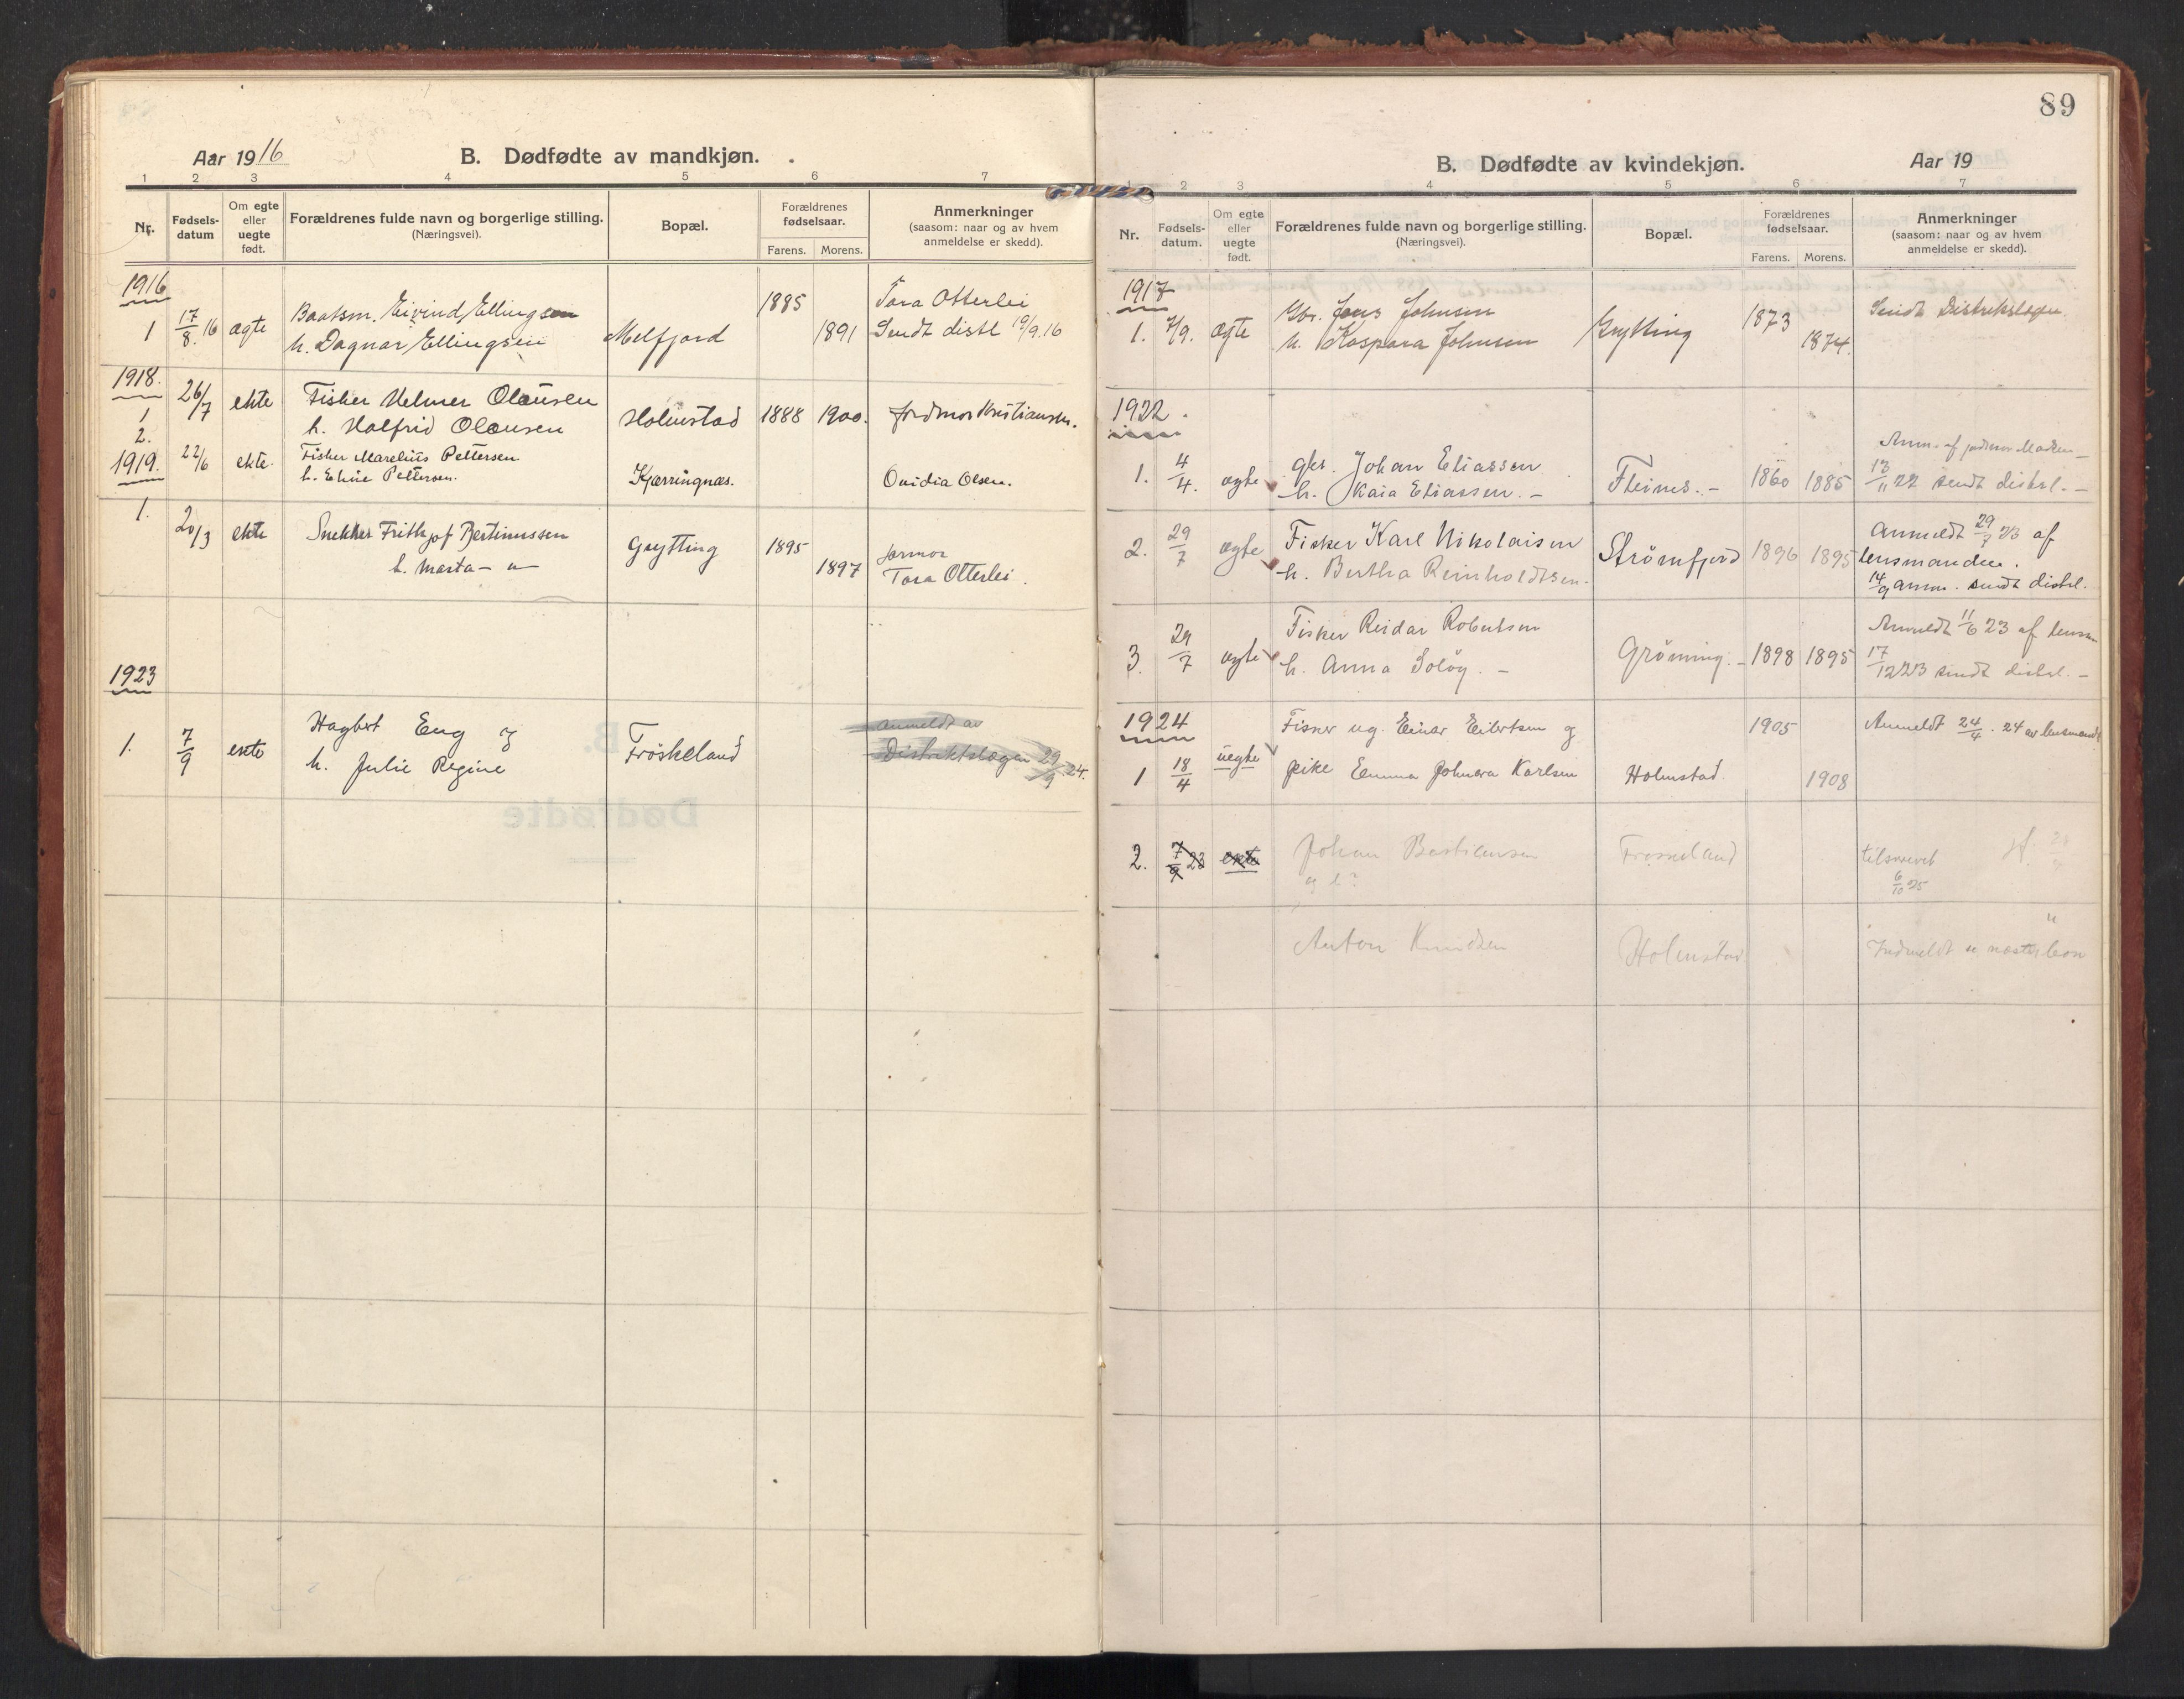 Aar 1916
B. Dødfødte av mandkjøn.
1 2 3 4 5 6 7
Nr.
Fødsels-
datum
Om egte
eller
uegte
født.
Forældrenes fulde navn og borgerlige stilling.
(Næringsvei).
Bopæl.
Forældrenes
fødselsaar.
Farens. Morens.
Anmerkninger
(saasom: naar og av hvem
anmeldelse er skedd).
1916
1 17/8.16 ægte
Baatsm. Eivind Ellingsen
h. Dagnar Ellingsen
Melfjord
1885
1891
Tora Otterlei
Sendt distl 19/9.16
1918.
1 26/7 ekte
Fisker Helmer Olausen
h. Halfrid Olausen
Holmstad 1888 1900.
Jordmor Kristiansen.
2. 22/6 ekte.
Fisker Marelius Pettersen
h. Eline Pettersen.
Kjærringnæs.
Ovidia Olsen.
1919.
1. 20/3 ekte
Snekker Frithjof Bertinussen
h. Marta - " -
Grytting
1895
1897
Jormor
Tora Otterlei.
1923
1. 7/9 ekte
Hagbert Eng og
h. Julie Regine
Fröskeland
Anmeldt av
Distriktslægen 29/9 24.
B.
Dødfødte
89
B. Dødfødte av kvindekjøn.
Aar 19
1 2 3 4 5 6 7
Nr.
Fødsels-
datum.
Om egte
eller
uegte
født.
Forældrenes fulde navn og borgerlige stilling.
(Næringsvei).
Bopæl.
Forældrenes
fødselsaar.
Farens. Morens.
Anmerkninger
(saasom: naar og av hvem
anmeldelse er skedd).
1917
1. /9. ægte
Jens Johnsen
h. Kaspara Johnsen
Grytting
1873
1874.
Sendt Distriktslægen.
1922.
1. 4/4. ægte
gbr. Johan Eliassen
h. Kaia Eliassen. -
Fleines. - 1860 1885
Anm. af jordmor Madsen -
13/11 22 sendt distrl. -
2. 29/7 ægte
Fisker Karl Nikolaisen
h. Bertha Reinholdtsen.
Strömfjord 1896 1895
Anmeldt 29/7 23 af
lensmanden.
14/9 anm. sendt distrl.
3. 29/7 ægte
Fisker Reidar Robertsen
h. Anna Solöy. -
Gröning. - 1898 1895
Anmeldt 11/6 23 af lensm
17/12 23 sendt distrl. -
1924
1 18/4 uegte
Fisker ug. Einar Eilertsen og
pike Emma Johnera Karlsen
Holmstad.
1905
1908
Anmeldt 24/4. 24 av lensmand
2. 7/9 23 ekte
Johan Bastiansen
og h?
Frøskeland
tilskrevet
6/10 25
Anton Knudsen
Holmstad
"
Indmeldt se næste leon